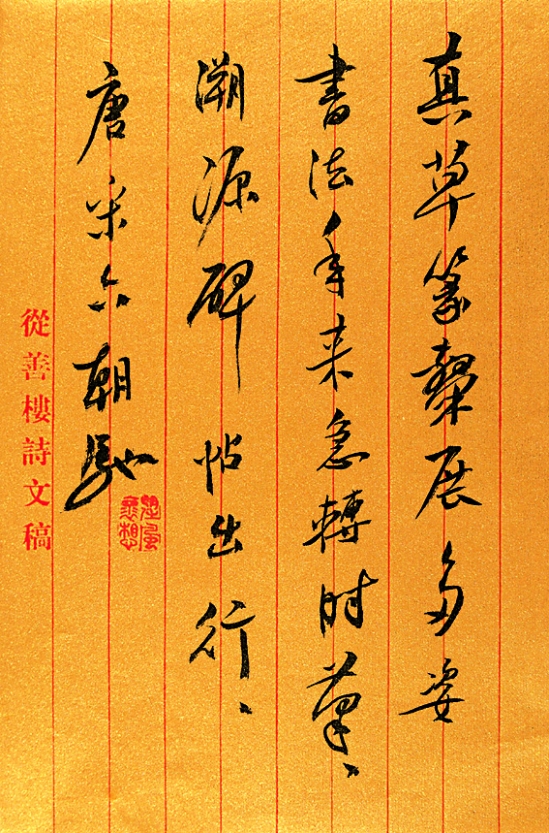 真草篆隸展多姿
書法年来急轉时筆、
溯源碑帖出行、
唐宋六朝馳
從善樓詩文稿